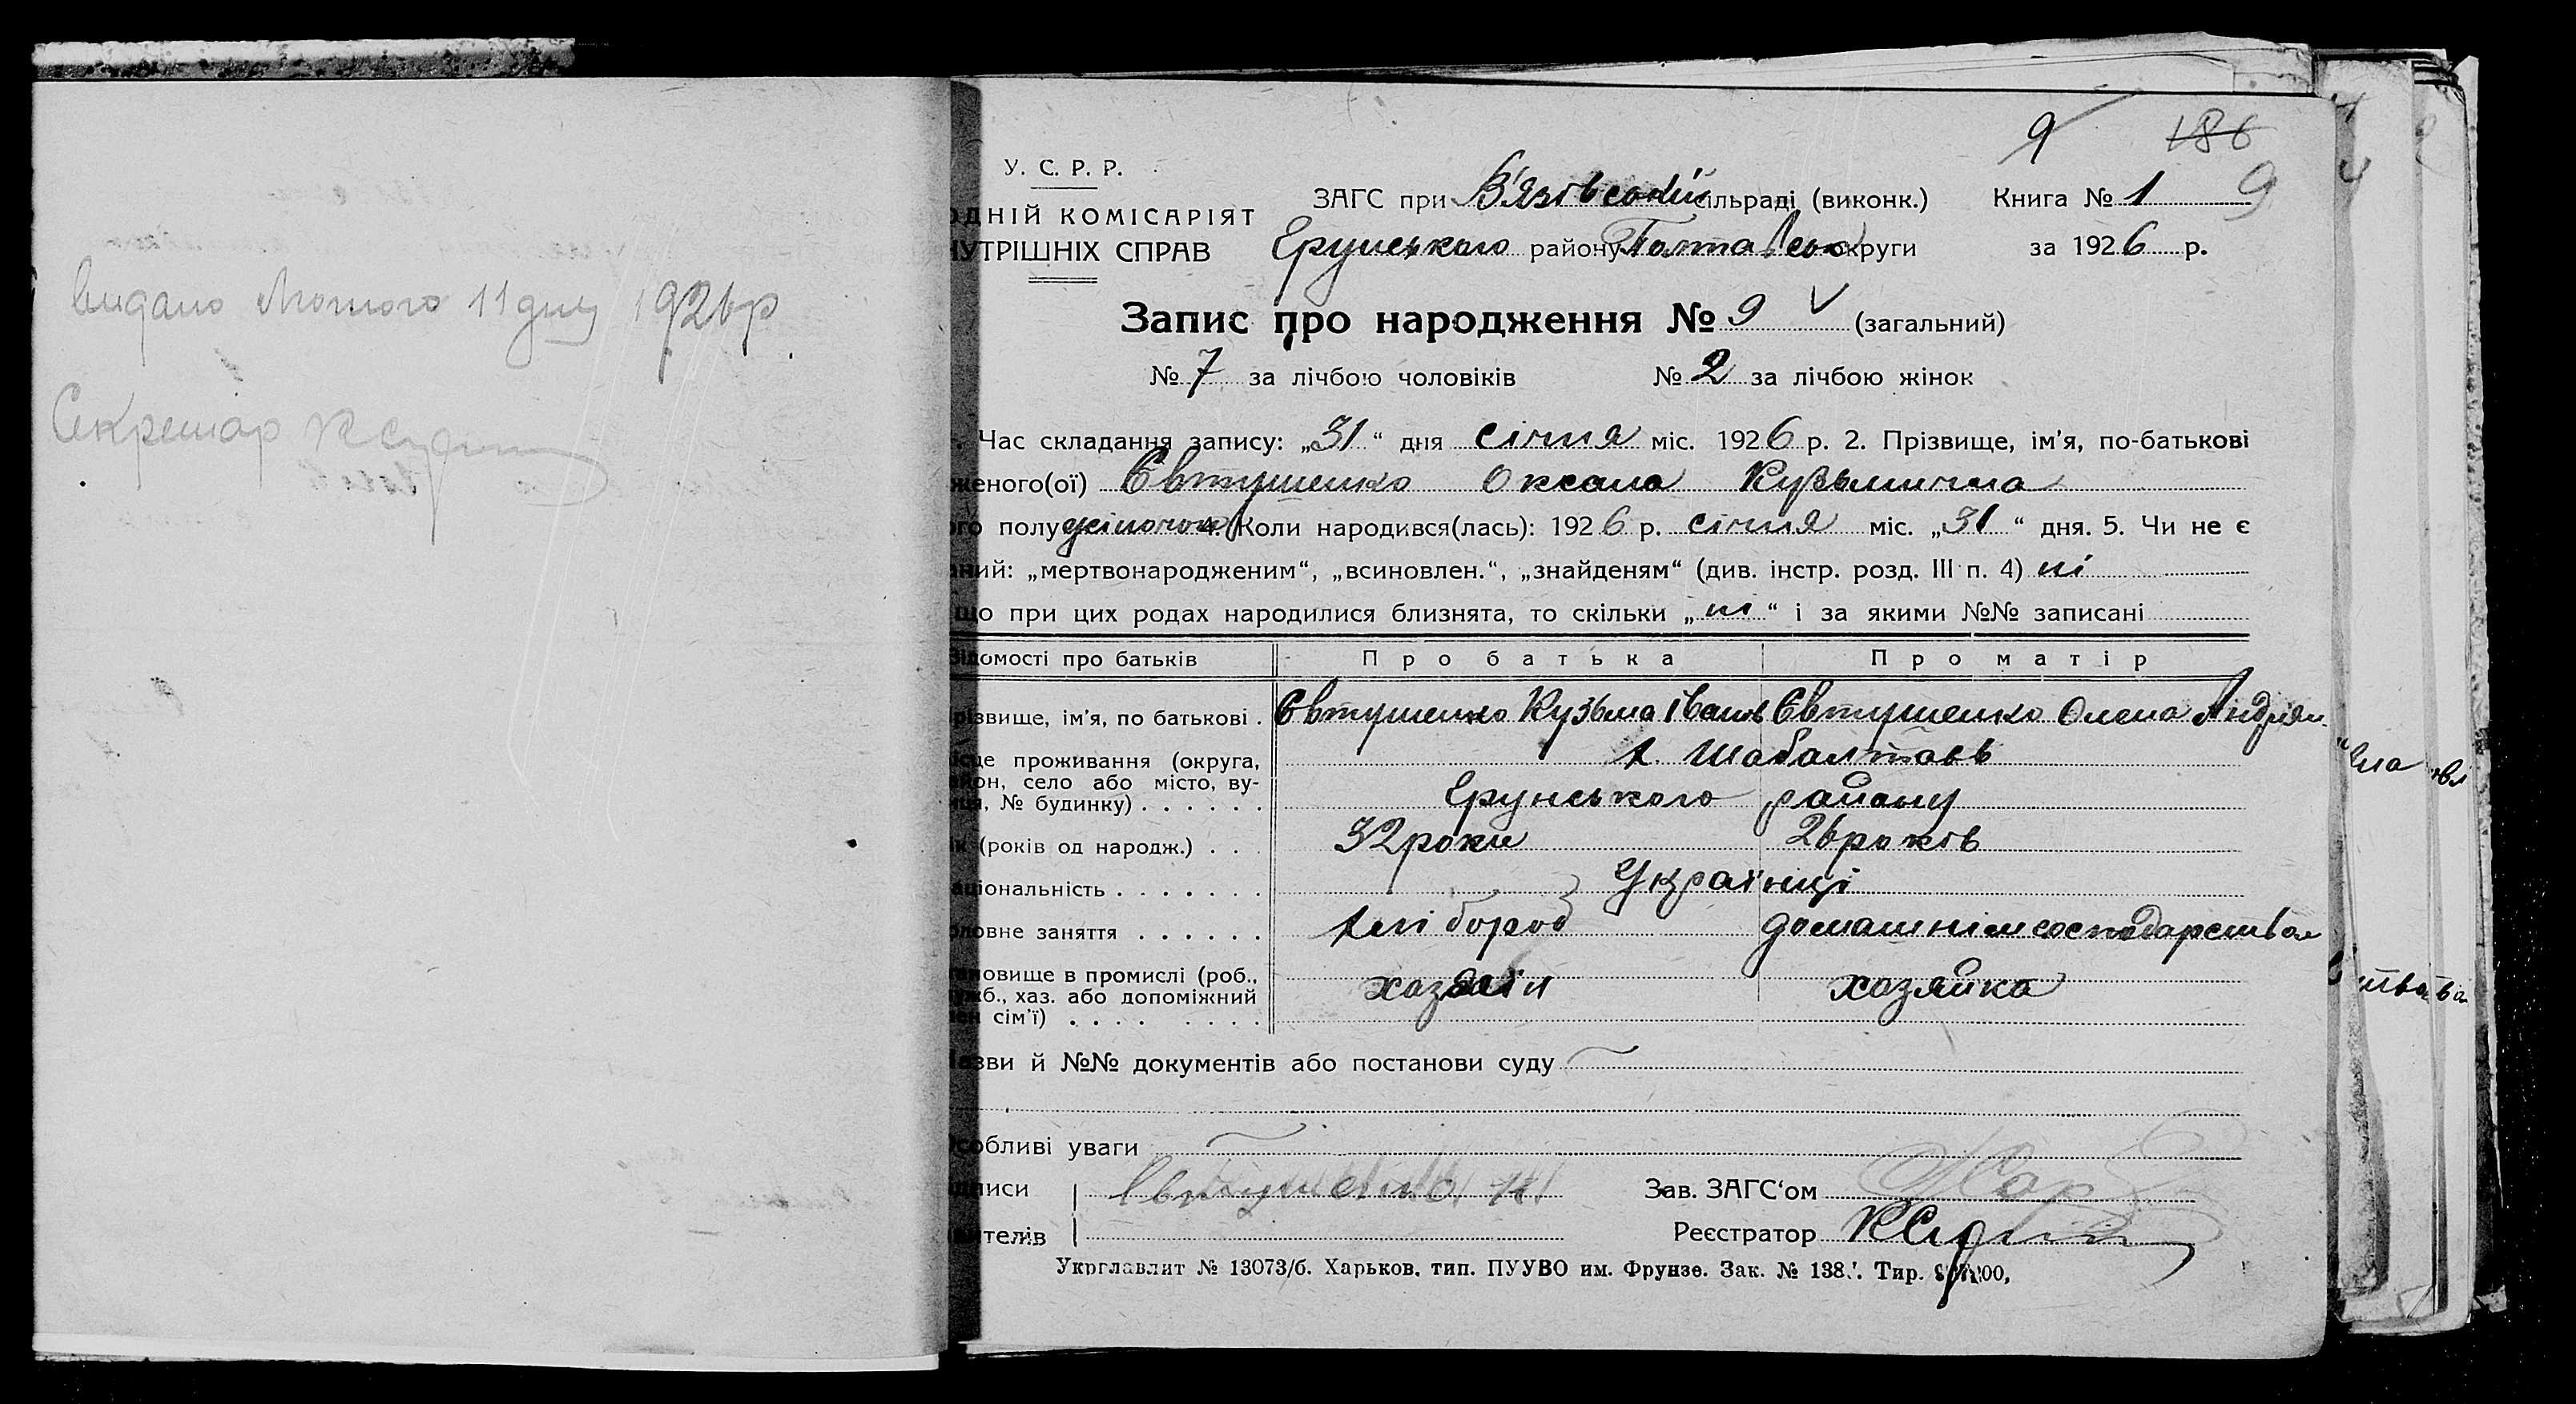 видано Лютого 11 дня 1926 р
Секретар
9 186
У. С. Р. Р.
ЗАГС при В'язівській сільраді (виконк.) Книга № 1 9
ОДНІЙ КОМІСАРІЯТ
НУТРІШНІХ СПРАВ
району Полтавсько округи за 1926 р.
Запис про народження № 9 (загальний)
№ 7 за лічбою чоловіків № 2 за лічбою жінок
Час складання запису: „31“ дня січня міс. 1926 р. 2. Прізвище, ім'я, по-батькові
женого(ої) Євтушенко Оксана Кузьминична
ого полу жіночого 4. Коли народився(лась): 1926 р. січня міс. „31“ дня. 5. Чи не є
аний: „мертвонародженим“, „всиновлен.“, „знайденям“ (див. інстр. розд. III п. 4) ні
що при цих родах народилися близнята, то скільки „ні“ і за якими №№ записані
Відомості про батьків Про батька Про матір
різвище, ім'я, по батькові . Євтушенко Кузьма Іванов Євтушенко Олена Андріян.
ісце проживання (округа, х. Шабалтаєв
йон, село або місто, ву-
иця, № будинку) . . . . . . району
ік (років од народж.) . . . 32 роки 26 років
аціональність . . . . . . . Українці
оловне заняття . . . . . . хлібороб домашнім господарством
ановище в промислі (роб.,
ужб., хаз. або допоміжний хазяїн хазяйка
лен сім'ї) . . . . . . . .
Назви й №№ документів або постанови суду
Особливі уваги
дписи Євтушенко К Зав. ЗАГС'ом
вителів Реєстратор
Укрглавлит № 13073/б. Харьков, тип. ПУУВО им. Фрунзе. Зак. № 138 Тир.